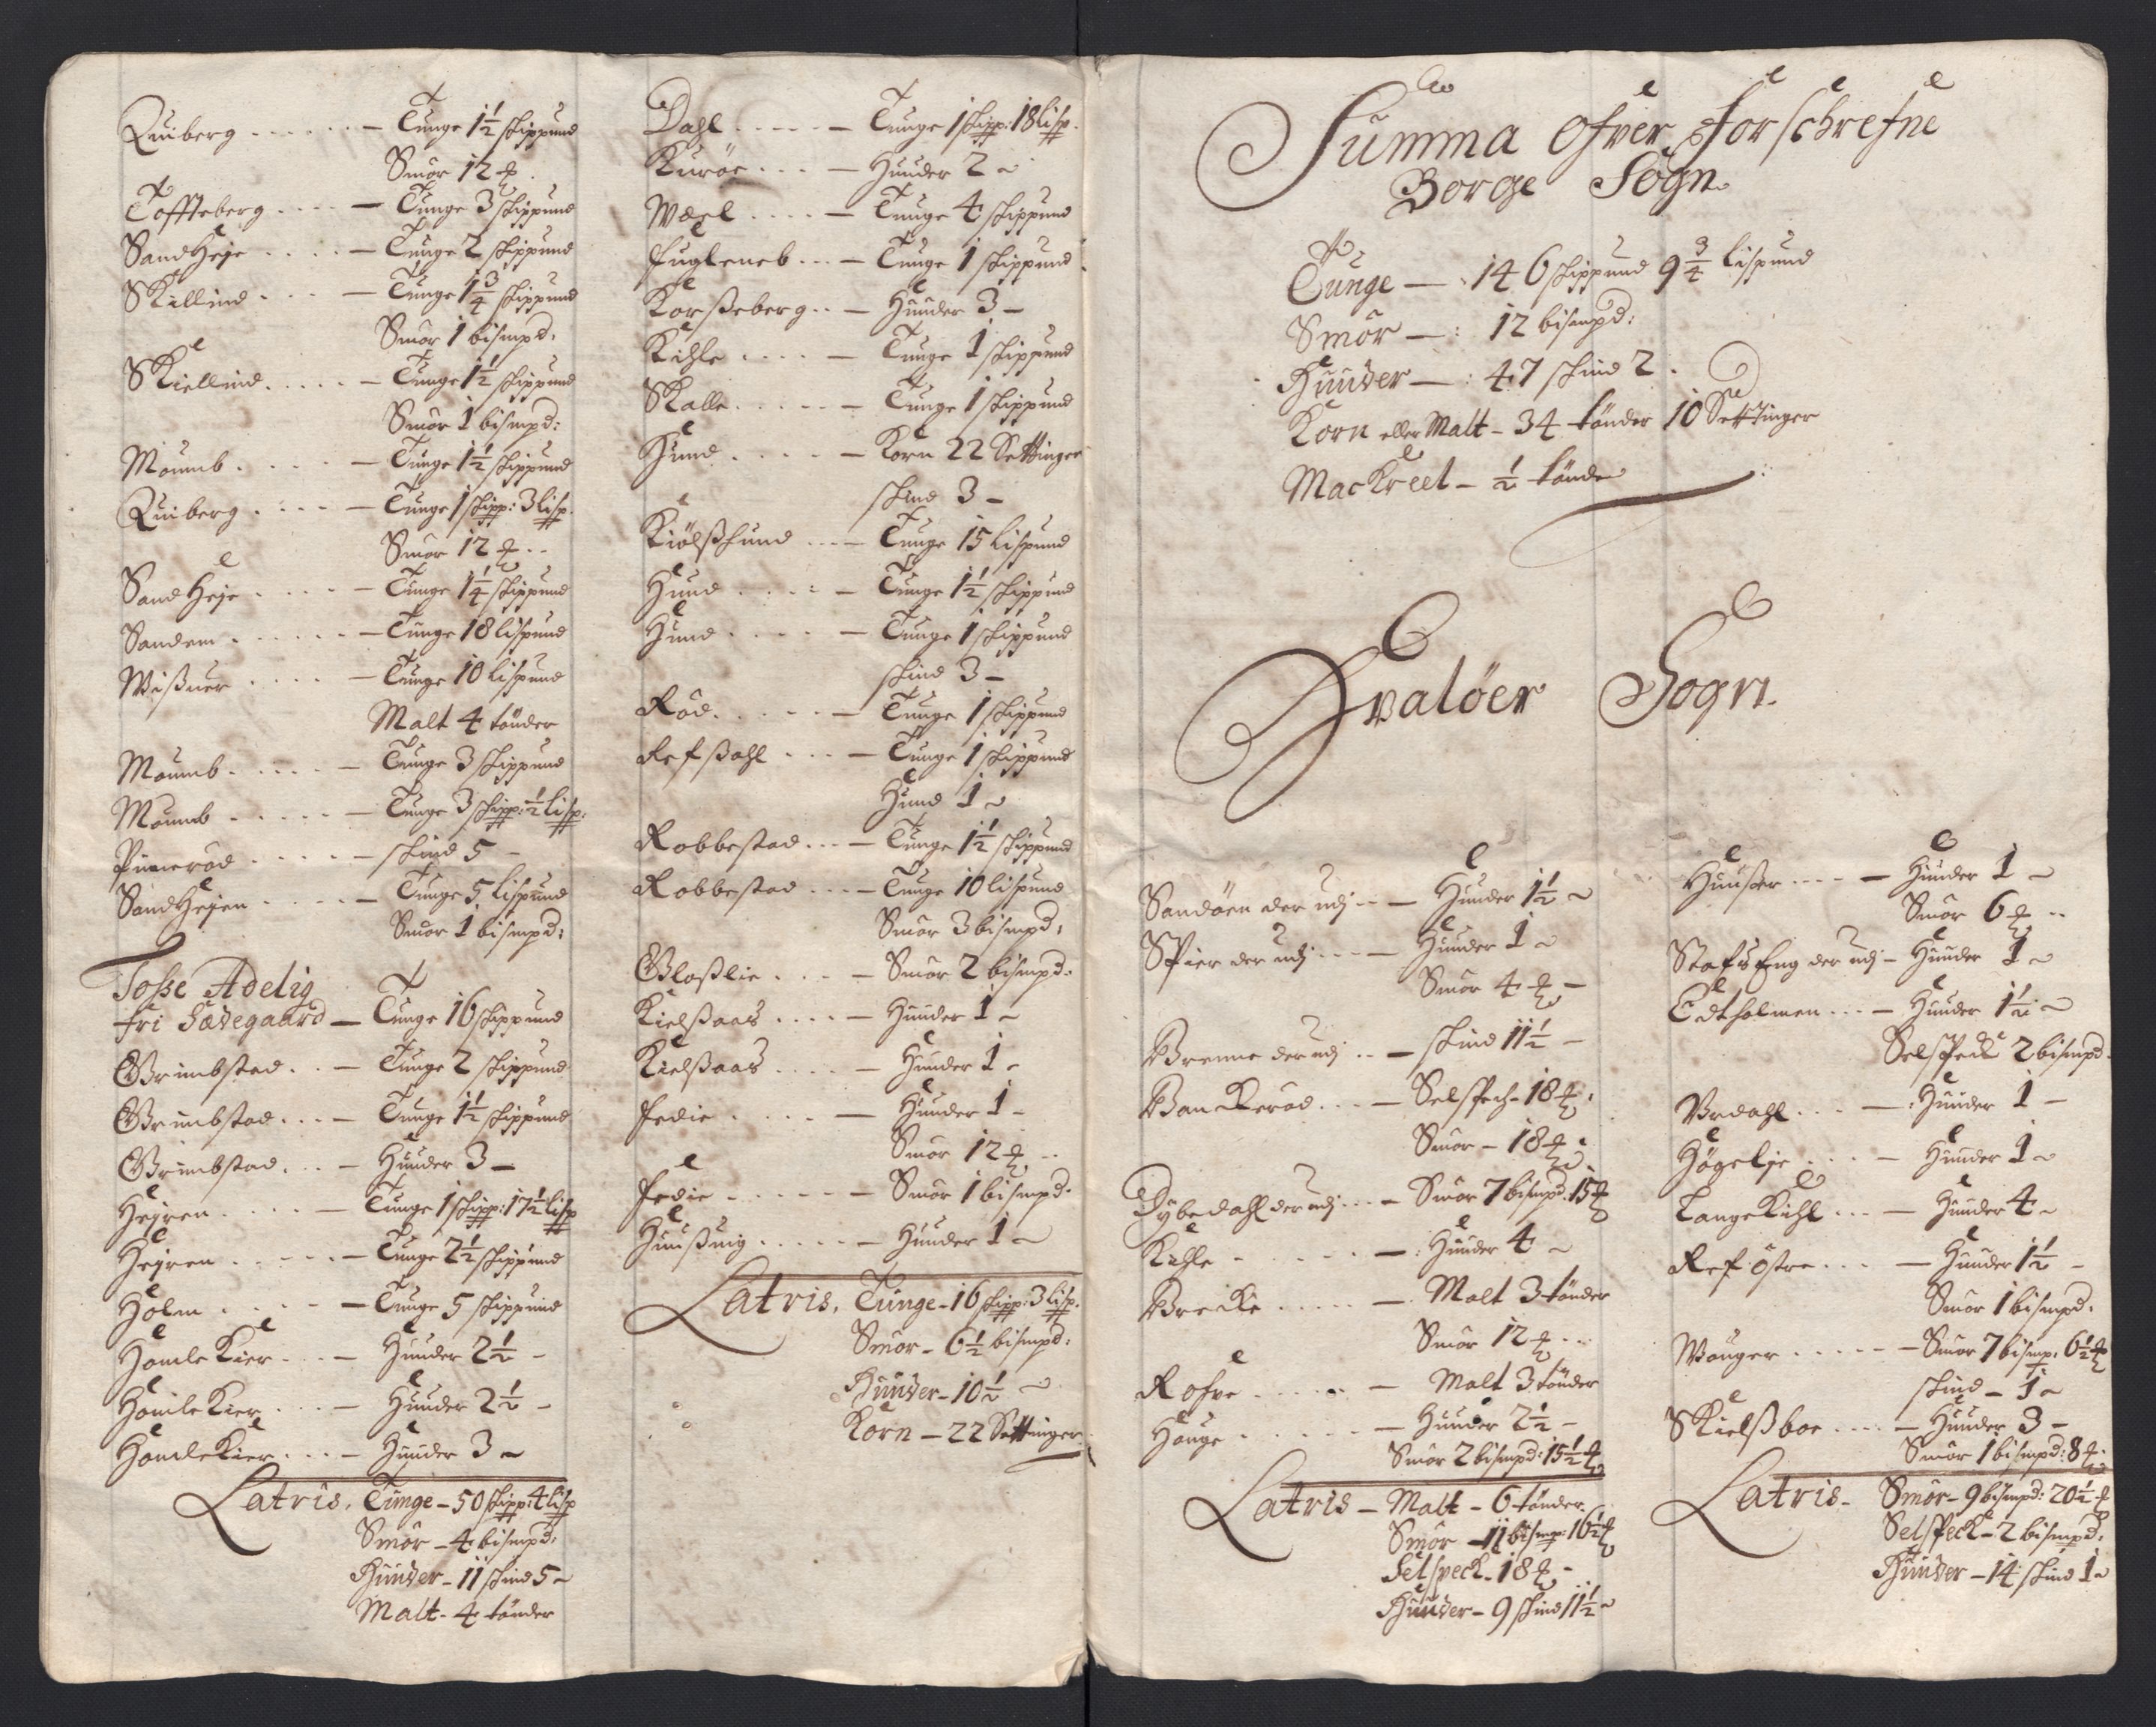 Quiberg - Tunge 1½ schippund
Smör 12 ℔
Toffteberg - Tunge 3 schippund
SandHeje - Tunge 2 schippund
Skillind - Tunge 1¾ schippund
Smör 1 bismpd:
Skiellind - Tunge 1½ schippund
Smör 1 bismpd:
Moumb - Tunge 1½ schippund
Quiberg - Tunge 1 schipp: 3 lisp.
Smör 12 ℔
Sand Heje - Tunge 1¼ schippund
Sandem - Tunge 18 lispund
Wißner - Tunge 10 lispund
Malt 4 tönder
Moumb - Tunge 3 schippund
Moumb - Tunge 3 schipp: ½ lisp:
Punerød - schind 5 -
SandHejen - Tunge 5 Lispund
Smör 1 bismpd:
Tosse Adelig
fri Sædegaard - Tunge 16 schippund
Grimbstad - Tunge 2 schippund
Grimbstad - Tunge 1½ schippund
Grimbstad - Huuder 3 -
Hejren - Tunge 1 schipp: 17½ lisp
Hejren - Tunge 2½ schippund
Holm - Tunge 5 schippund
HomleKier - Huuder 2½ -
HomleKier - Huuder 2½ -
HomleKier - Huuder 3 -
Latris, Tunge - 50 schipp: 4 lisp
Smör - 4 bismpd:
Huuder - 11 schind 5 -
Malt - 4 tönder
Dahl - Tunge 1 schipp: 18 lisp.
Kuröe - Huuder 2 -
Wæel - Tunge 4 schippund
Fugleneb - Tunge 1 schippund
Korßeberg - Huuder 3 -
Kihle - Tunge 1 schippund
Skalle - Tunge 1 schippund
Hund - Korn 22 Settinger
schind 3 -
Kiölßhund - Tunge 15 Lispund
Hund - Tunge 1½ schippund
Hund - Tunge 1 schippund
schind 3 -
Röd - Tunge 1 schippund
Refßahl - Tunge 1 schippund
Huud 1 -
Robbestad - Tunge 1½ schippund
Robbestad - Tunge 10 lispund
Smör 3 bismpd:
Gloßlie - Smör 2 bismpd:
Kielßaas - Huuder 1 -
Kielßaas - Huuder 1 -
Fedie - Huuder 1 -
Smör 12 ℔
Fedie - Smör 1 bismpd:
Huußuig - Huuder 1 -
Latris, Tunge - 16 schipp: 3 lisp.
Smör - 6½ bismpd:
Huuder - 10½ -
Korn - 22 Settinger
Summa Ofver forschrefne
Borge Sogn.
Tunge - 146 schippund 9¾ lispund
Smör - : 12 bismpd:
Huuder - : 47 schind 2.
Korn eller Malt - 34 tönder 10 Settinger
MacKreel - ½ tönde
Hvalöer Sogn.
Sandöen der udj - Huuder 1½ -
Spier der udj - Huuder 1 -
Smör 4 ℔ -
Brenne der udj - schind 11½ -
BanKeröd - Selspech - 18 ℔:
Smör - 18 ℔:
Dybedahl der udj - Smör 7 bismpd: 15 ℔
Kihle - Huuder 4 -
BreKe - Malt 3 tönder
Smör 12 ℔
Rofve - Malt 3 tönder
Houge - Huuder 2½ -
Smör 2 bismpd: 15½ ℔
Latris - Malt - 6 tönder
Smör - 11 bismp: 16½ ℔
Selspeck - 18 ℔ -
Huuder - 9 schind 11½ -
Huußer - Huuder 1 -
Smör 6 ℔
Stafs Eng der udj - Huuder 1 -
Edtholmen - Huuder 1½ -
Selspeck 2 bismpd.
Urdahl - Huuder 1 -
Högelje - Huuder 1 -
LangeKihl - Huuder 4 -
Ref östre - Huuder 1½ -
Smör 1 bismpd.
Wouger - Smör 7 bismp: 6½ ℔
schind - 1 -
Skielßboe - Huuder 3 -
Smör 1 bismpd: 8 ℔:
Latris - Smör - 9 bismpd: 20½ ℔
Selspeck - 2 bismpd:
Huuder - 14 schind 1 -